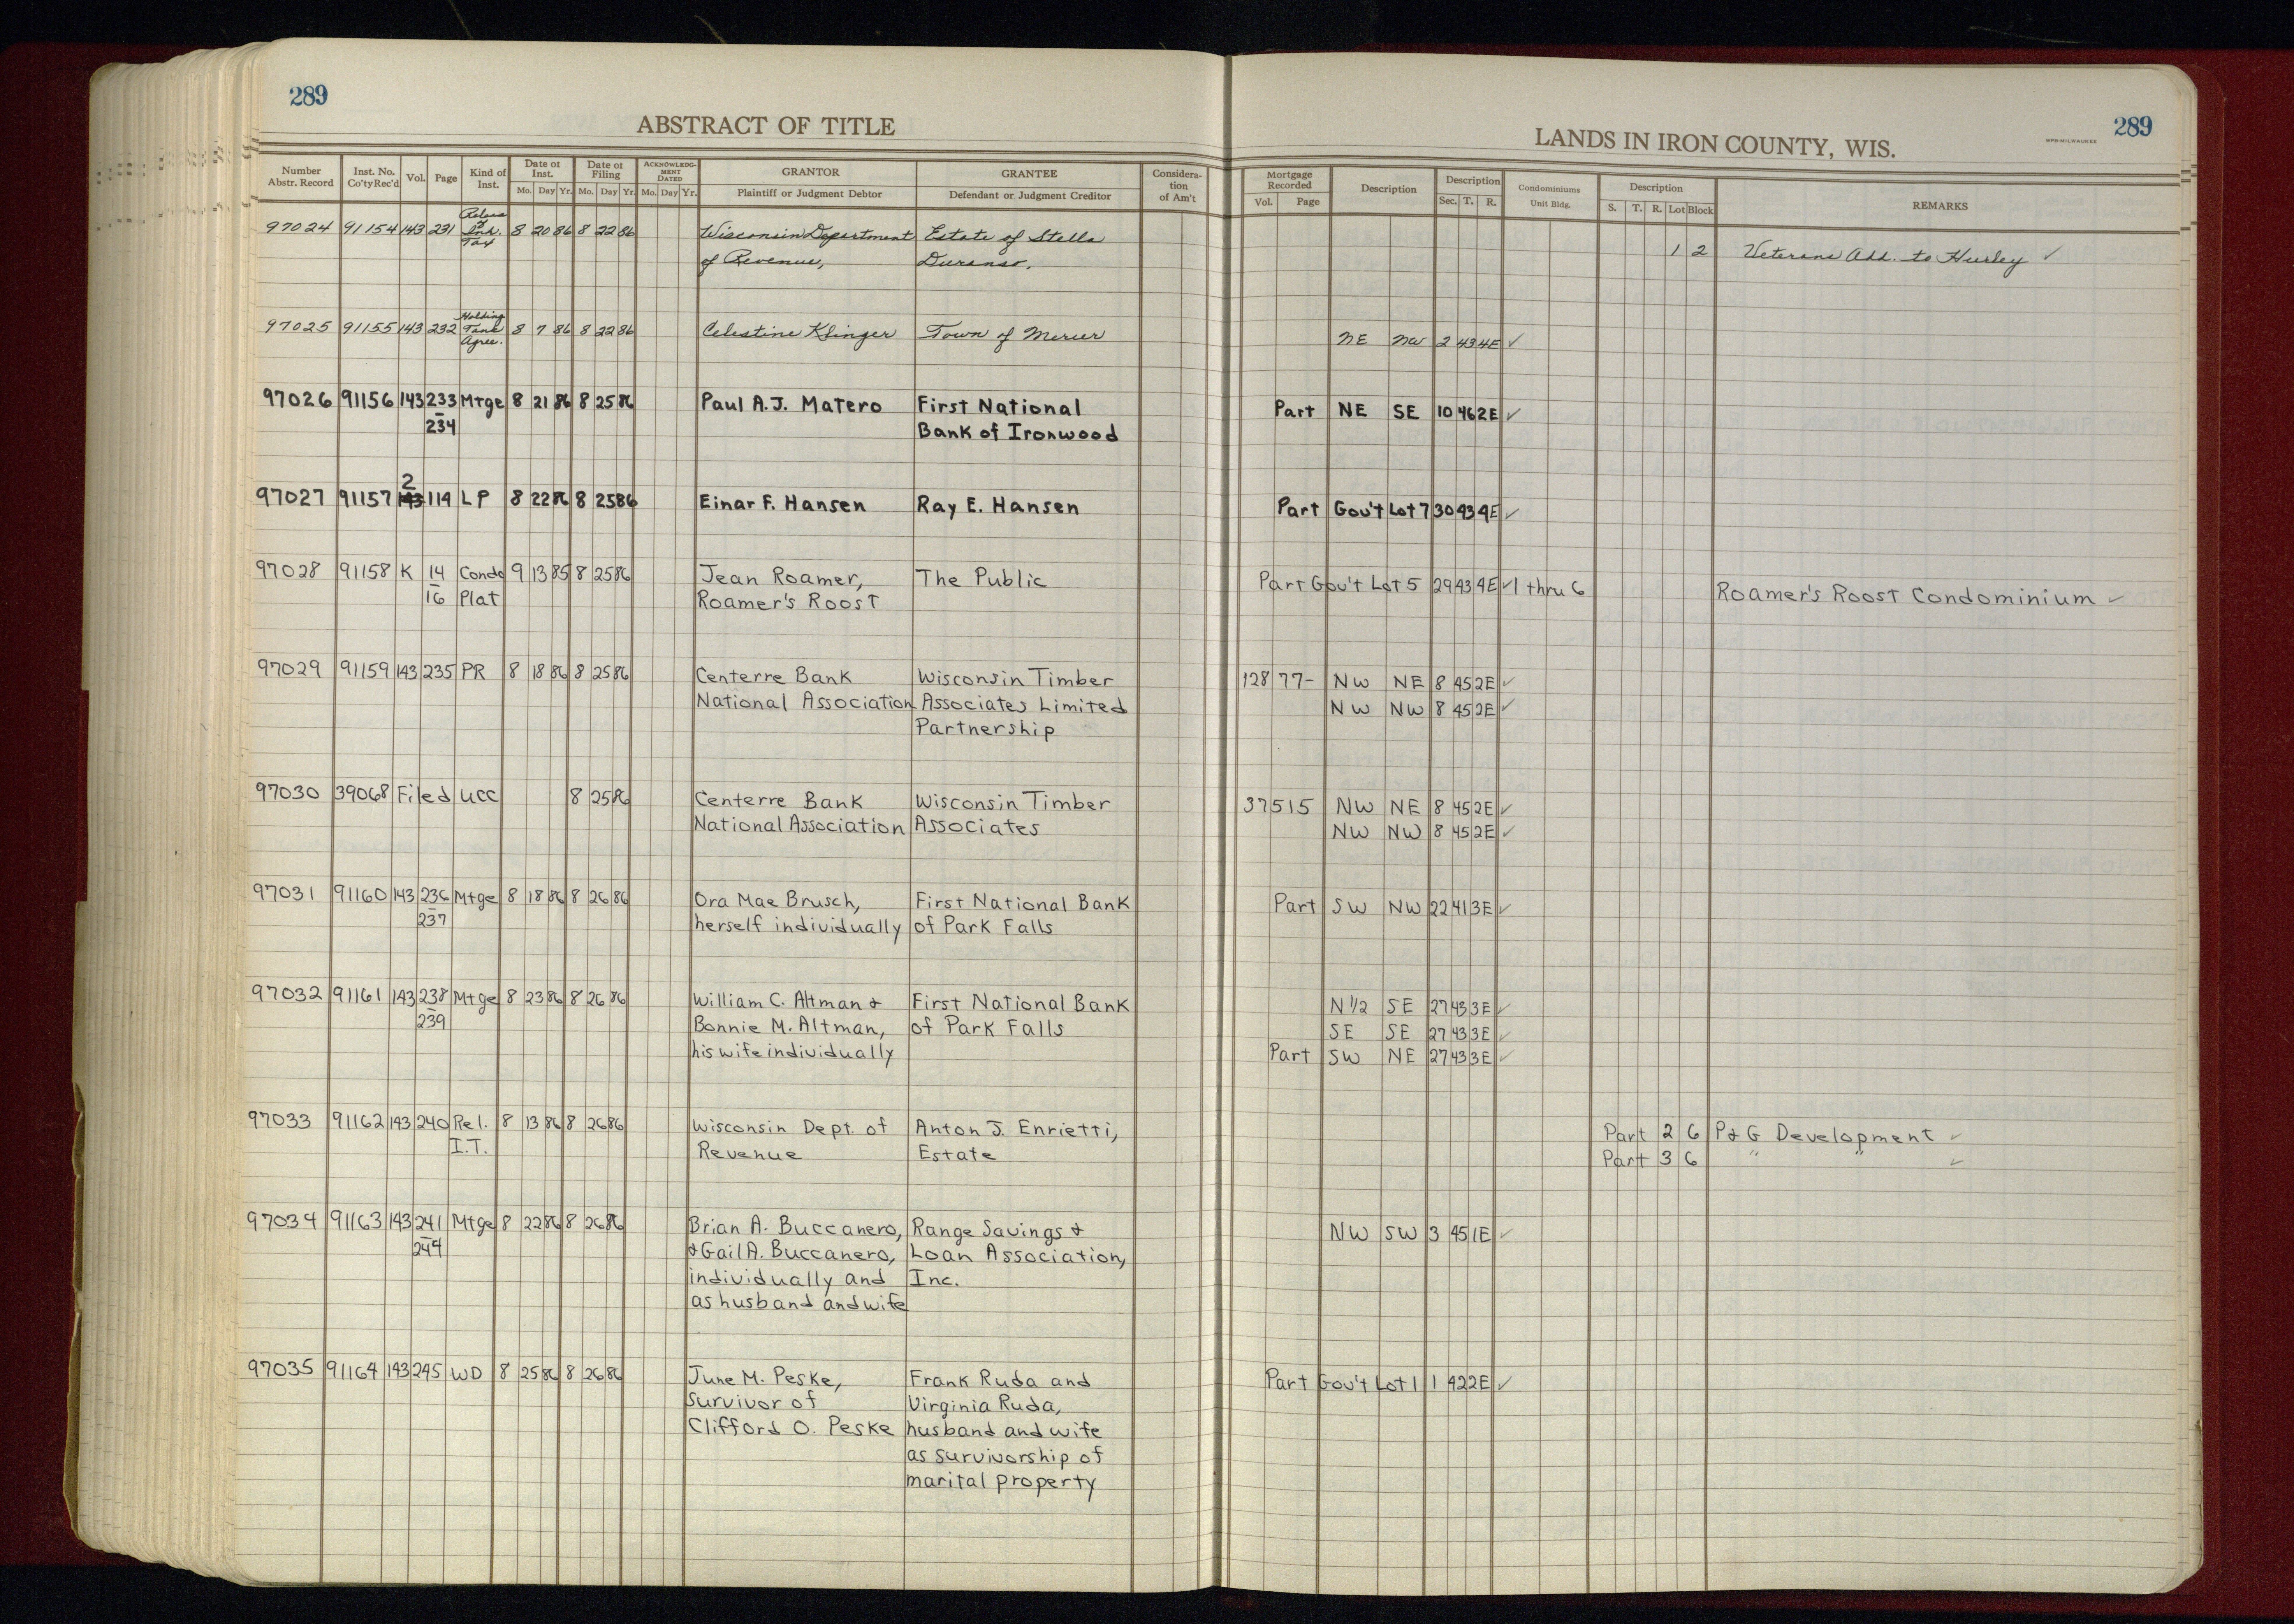 289
ABSTRACT OF TITLE
Number Abstr. Record Inst. No. Co'ty Rec'd Vol. Page Kind of Inst. Date of Inst. Mo. Day Yr. Date of Filing Mo. Day Yr. ACKNOWLEDGMENT DATED Mo. Day Yr. GRANTOR Plaintiff or Judgment Debtor GRANTEE Defendant or Judgment Creditor Consideration of Am't
LANDS IN IRON COUNTY, WIS.
289
Mortgage Recorded Vol. Page Description Description Sec. T. R. Condominiums Unit Bldg. Description S. T. R. Lot Block REMARKS
97024 91154 143 231 Release of Inh. Tax 8 20 86 8 22 86 Wisconsin Department Estate of Stella
of Revenue, 1 2 Veterans Add. to Hurley ✓
97025 91155 143 232 Holding Tank Agree. 8 7 86 8 22 86 Celestine Klinger Town of Mercer NE NW 2 43 4E ✓
97026 91156 143 233 Mtge 8 21 86 8 25 86 Paul A.J. Matero First National Part NE SE 10 46 2E ✓
234 Bank of Ironwood
2
97027 91157 143 114 LP 8 22 86 8 25 86 Einar F. Hansen Ray E. Hansen Part Gov't Lot 7 30 43 4E ✓
97028 91158 K 14 Condo 9 13 85 8 25 86 Jean Roamer, The Public Part Gov't Lot 5 29 43 4E ✓ 1 thru 6 Roamer's Roost Condominium ✓
16 Plat Roamer's Roost
97029 91159 143 235 PR 8 18 86 8 25 86 Centerre Bank Wisconsin Timber 128 77- NW NE 8 45 2E ✓
National Association Associates Limited NW NW 8 45 2E ✓
Partnership
97030 39068 Filed UCC 8 25 86 Centerre Bank Wisconsin Timber 37515 NW NE 8 45 2E ✓
National Association Associates NW NW 8 45 2E ✓
97031 91160 143 236 Mtge 8 18 86 8 26 86 Ora Mae Brusch, First National Bank Part SW NW 22 41 3E ✓
237 herself individually of Park Falls
97032 91161 143 238 Mtge 8 23 86 8 26 86 William C. Altman & First National Bank N 1/2 SE 27 43 3E ✓
239 Bonnie M. Altman, of Park Falls SE SE 27 43 3E ✓
his wife individually Part SW NE 27 43 3E ✓
97033 91162 143 240 Rel. 8 13 86 8 26 86 Wisconsin Dept. of Anton J. Enrietti, Part 2 6 P & G Development ✓
I.T. Revenue Estate Part 3 6 " " ✓
97034 91163 143 241 Mtge 8 22 86 8 26 86 Brian A. Buccanero, Range Savings & NW SW 3 45 1E ✓
244 & Gail A. Buccanero, Loan Association,
individually and Inc.
as husband and wife
97035 91164 143 245 WD 8 25 86 8 26 86 June M. Peske, Frank Ruda and Part Gov't Lot 1 1 42 2E ✓
survivor of Virginia Ruda,
Clifford O. Peske husband and wife
as survivorship of
marital property